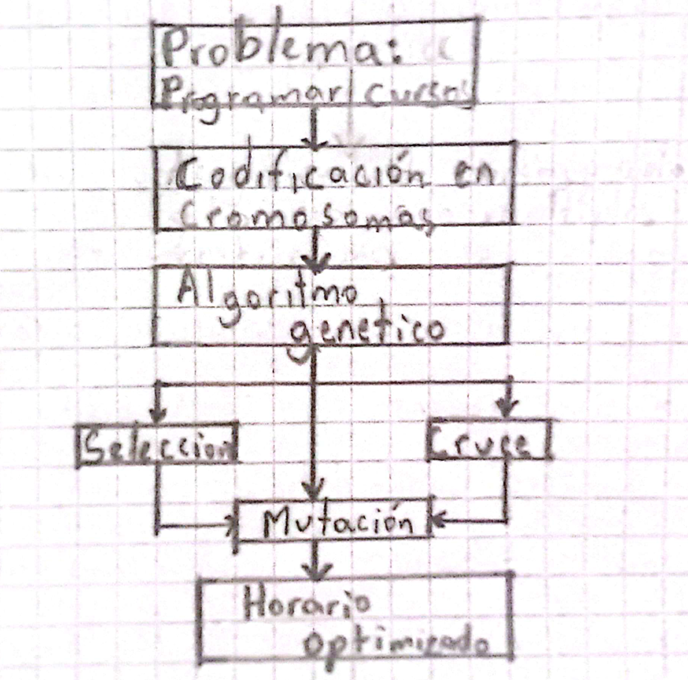 Problema:
Programar cursos
Codificación en
Cromosomas
Algoritmo
genetico
Seleccion
Cruce
Mutación
Horario
Optimizado